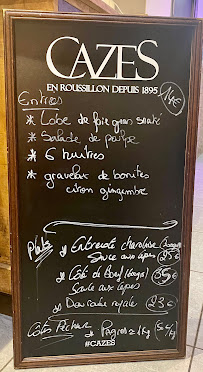 CAZES
EN ROUSSILLON DEPUIS 1895
Entrées 14€
* Lobe de foie gras snaké
* Salade de poulpe
* 6 huitres
* gravelax de bonites
citron gingembre
Plats
* Entrecôte charolaise
Sauce aux cèpes 25€
* Côte de Boeuf
Sauce aux cèpes 35€
* Daurade royale 23€
Côtés Pêcheur
#CAZES